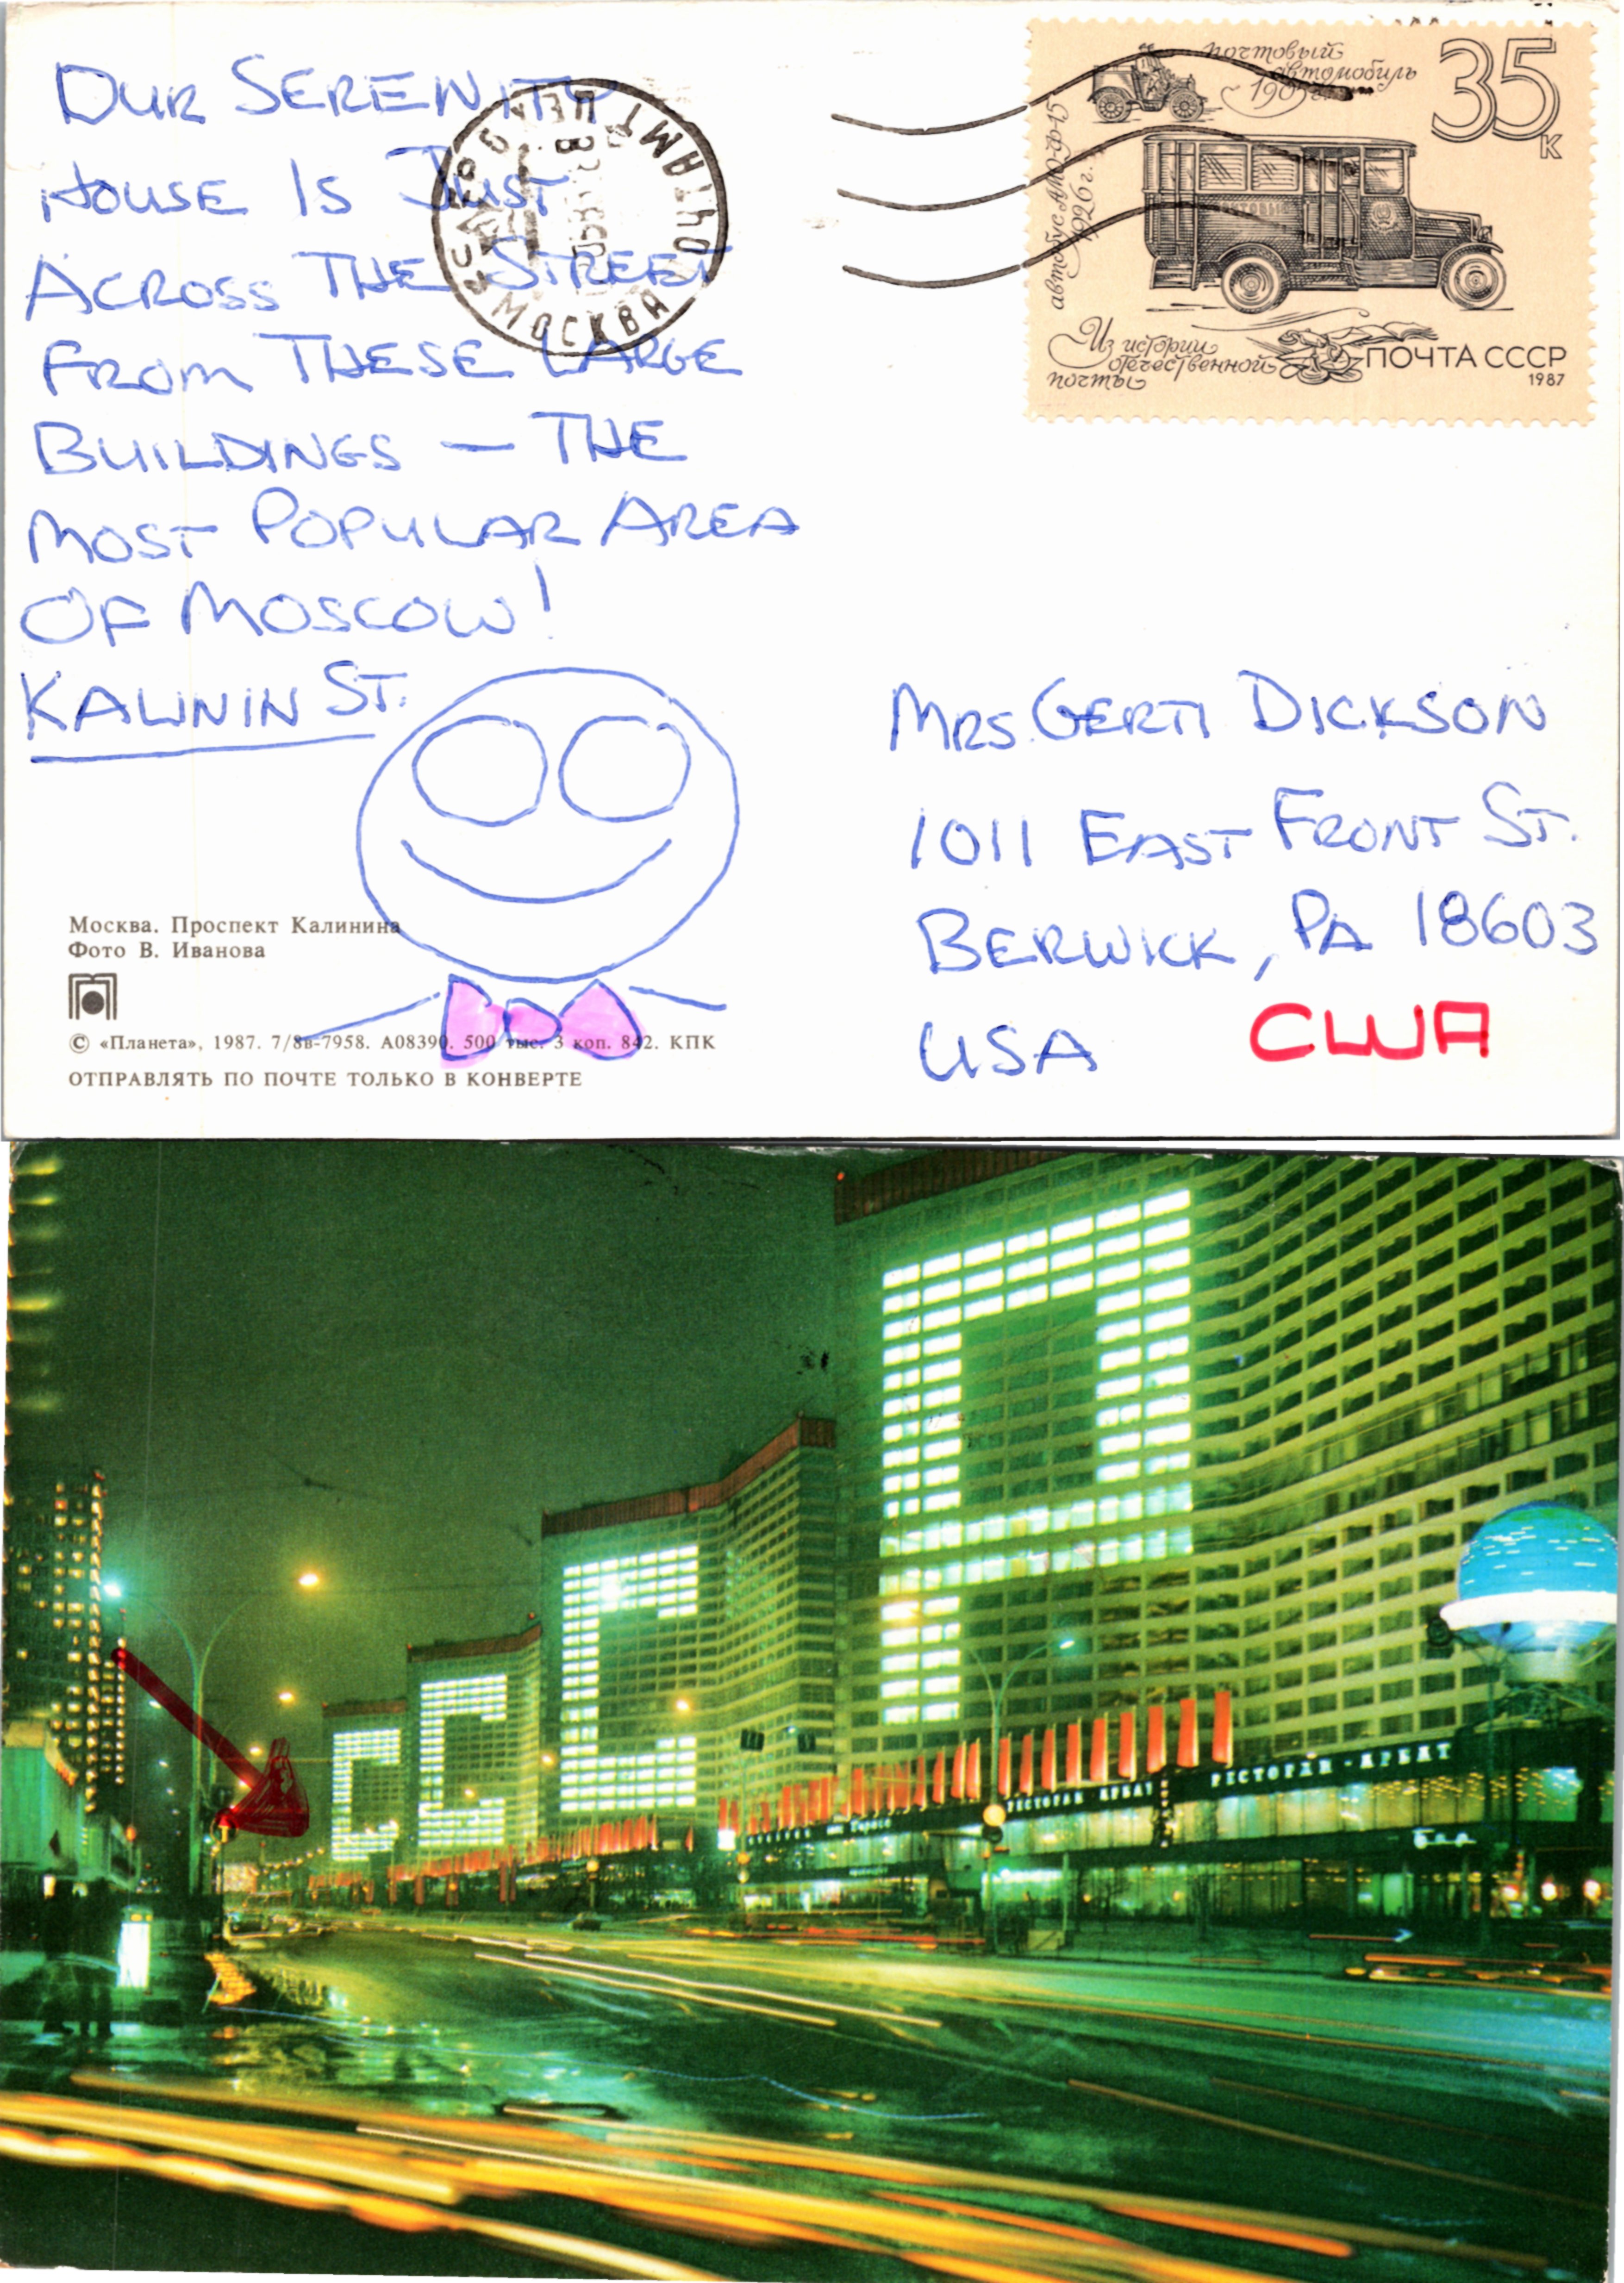 OUR SERENITY
HOUSE IS JUST
ACROSS THE STREET
FROM THESE LARGE
BUILDINGS — THE
MOST POPULAR AREA
OF MOSCOW!
KALININ ST.
МОСКВА
ПОЧТАМТ
почтовый
автомобиль
35
к
автобус АМО-Ф-15
1926 г.
Из истории
отечественной
почты
ПОЧТА СССР
1987
MRS. GERTI DICKSON
1011 EAST FRONT ST.
BERWICK, PA 18603
USA США
Москва. Проспект Калинина
Фото В. Иванова
© «Планета», 1987. 7/8в-7958. А08390. 500 тыс. 3 коп. 842. КПК
ОТПРАВЛЯТЬ ПО ПОЧТЕ ТОЛЬКО В КОНВЕРТЕ
СССР
РЕСТОРАН АРБАТ
РЕСТОРАН - АРБАТ
Бар